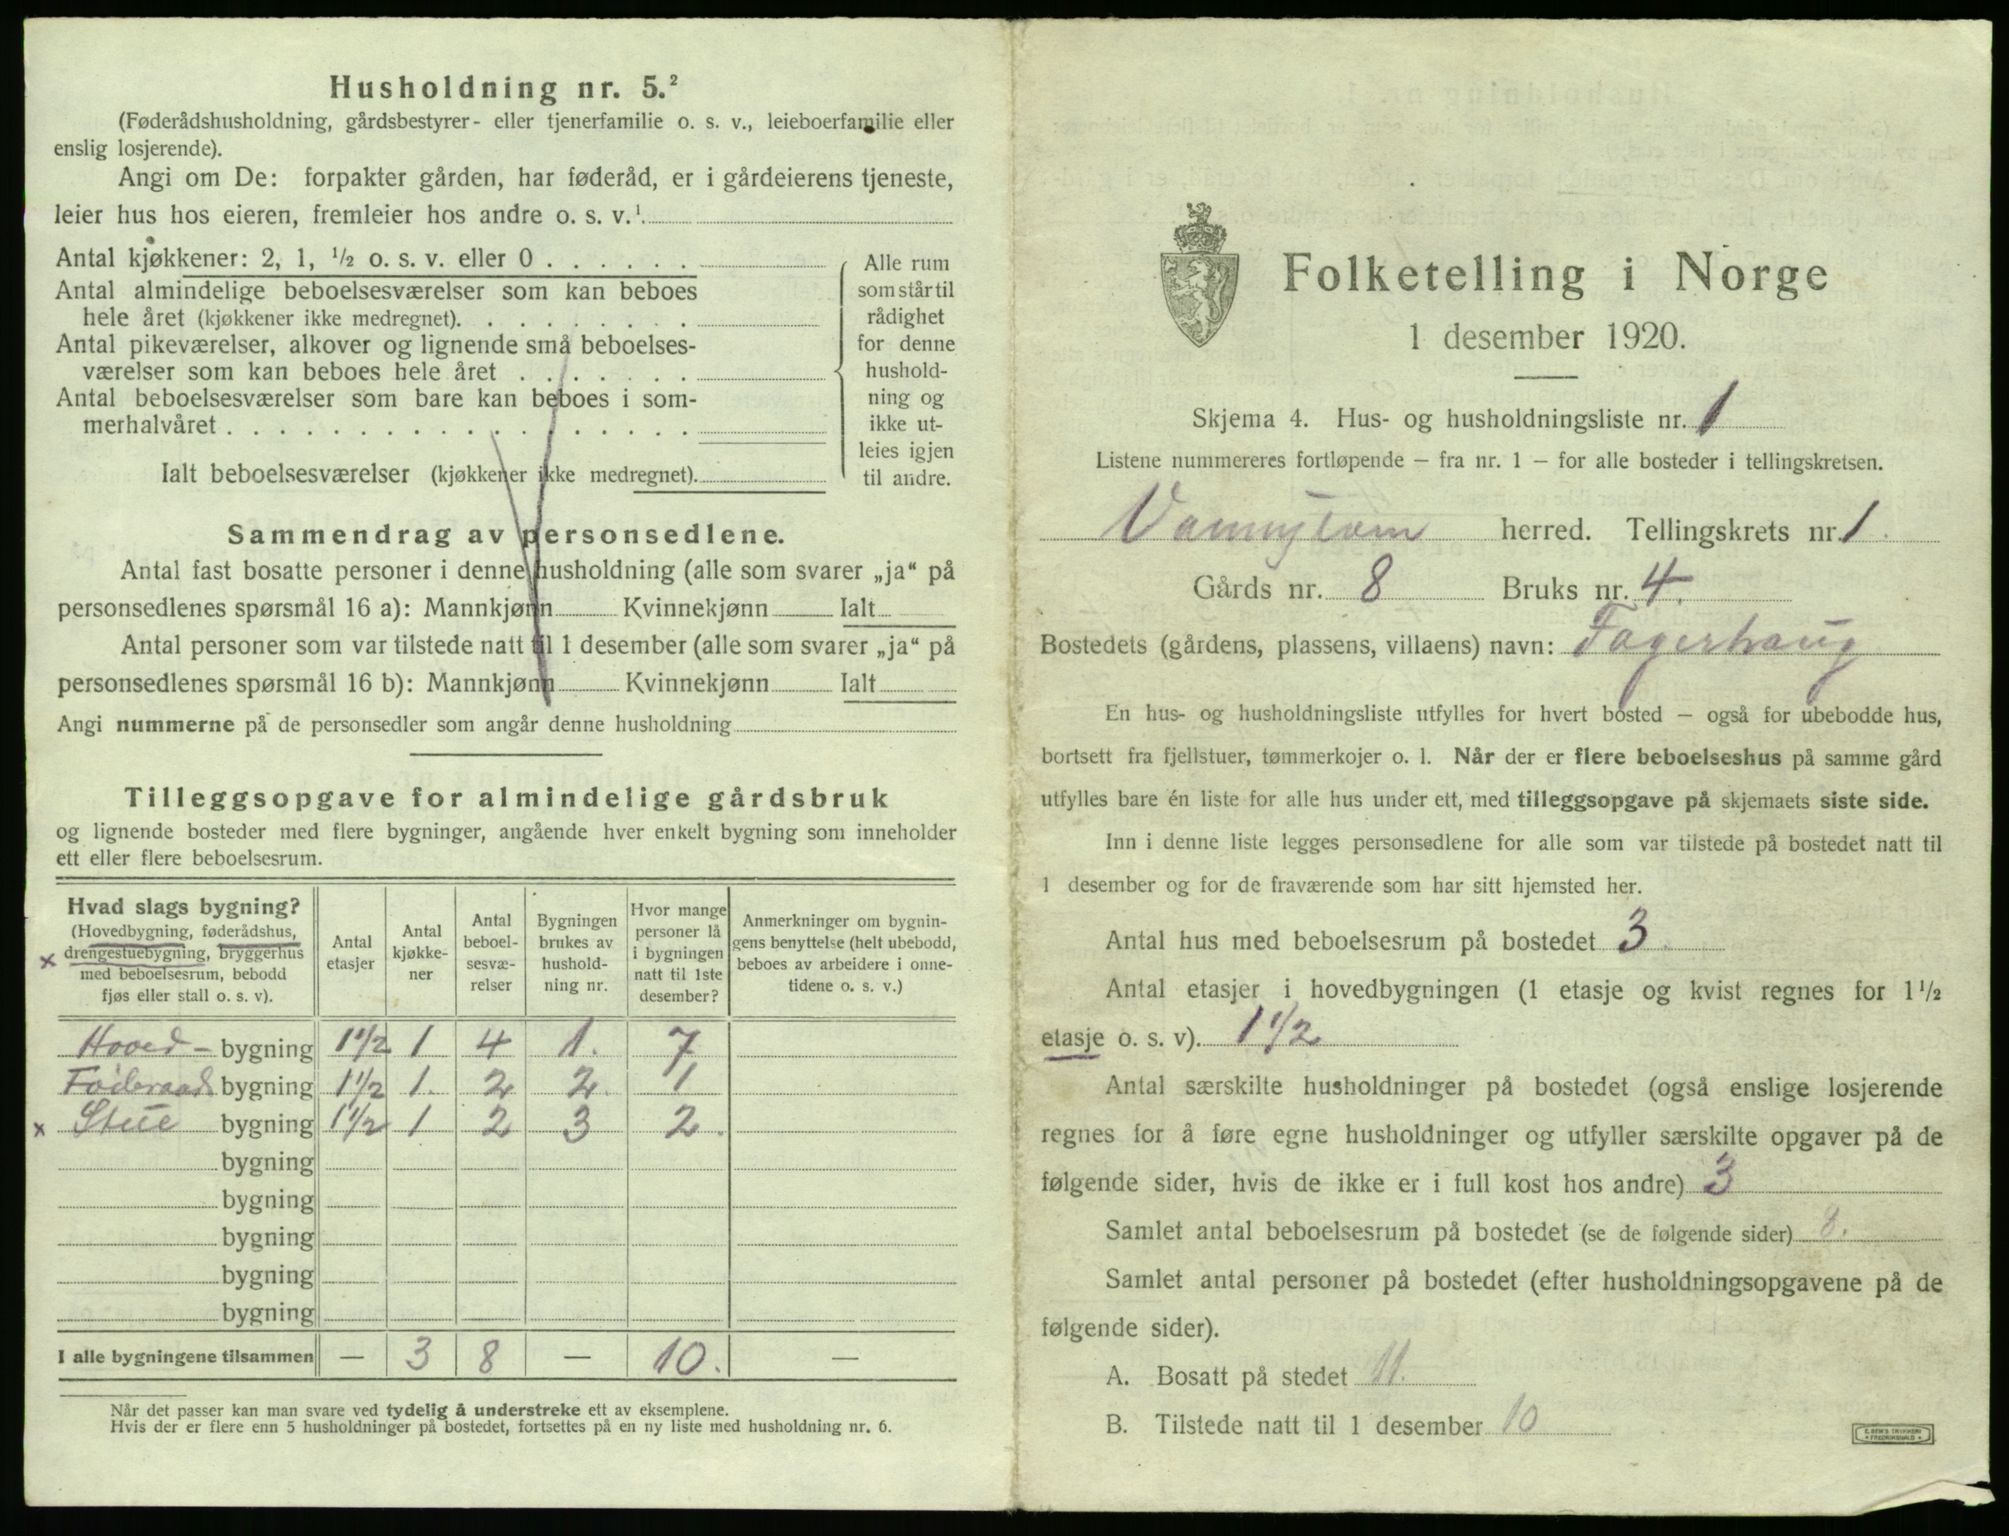 Husholdning nr. 5.²
(Føderådshusholdning, gårdsbestyrer- eller tjenerfamilie o. s. v., leieboerfamilie eller
enslig losjerende).
Angi om De: forpakter gården, har føderåd, er i gårdeierens tjeneste,
leier hus hos eieren, fremleier hos andre o. s. v.¹
Antal kjøkkener: 2, 1, ½ o. s. v. eller 0 . . . . . .
Antal almindelige beboelsesværelser som kan beboes
hele året (kjøkkener ikke medregnet). . . . . . . . .
Antal pikeværelser, alkover og lignende små beboelses-
værelser som kan beboes hele året . . . . . . .
Antal beboelsesværelser som bare kan beboes i som-
merhalvåret . . . . . . . . . . . . . . . . . .
Ialt beboelsesværelser (kjøkkener ikke medregnet).
Alle rum
som står til
rådighet
for denne
hushold-
ning og
ikke ut-
leies igjen
til andre.
Sammendrag av personsedlene.
Antal fast bosatte personer i denne husholdning (alle som svarer „ja“ på
personsedlenes spørsmål 16 a): Mannkjønn Kvinnekjønn Ialt
Antal personer som var tilstede natt til 1 desember (alle som svarer „ja“ på
personsedlenes spørsmål 16 b): Mannkjønn Kvinnekjønn Ialt
Angi nummerne på de personsedler som angår denne husholdning
Tilleggsopgave for almindelige gårdsbruk
og lignende bosteder med flere bygninger, angående hver enkelt bygning som inneholder
ett eller flere beboelsesrum.
Hvad slags bygning?
(Hovedbygning, føderådshus,
x drengestuebygning, bryggerhus
med beboelsesrum, bebodd
fjøs eller stall o. s. v).
Antal
etasjer
Antal
kjøkke-
ner
Antal
beboel-
sesvæ-
relser
Bygningen
brukes av
hushold-
ning nr.
Hvor mange
personer lå
i bygningen
natt til 1ste
desember?
Anmerkninger om bygnin-
gens benyttelse (helt ubebodd,
beboes av arbeidere i onne-
tidene o. s. v.)
Hoved- bygning 1½ 1 4 1. 7
Føderaads bygning 1½ 1. 2 2. 1
x Stue bygning 1½ 1 2 3 2.
bygning
bygning
bygning
bygning
bygning
I alle bygningene tilsammen — 3 8 — 10. —
Når det passer kan man svare ved tydelig å understreke ett av eksemplene.
Hvis der er flere enn 5 husholdninger på bostedet, fortsettes på en ny liste med husholdning nr. 6.
Folketelling i Norge
1 desember 1920.
Skjema 4. Hus- og husholdningsliste nr. 1
Listene nummereres fortløpende — fra nr. 1 — for alle bosteder i tellingskretsen.
herred. Tellingskrets nr. 1.
Gårds nr. 8 Bruks nr. 4.
Bostedets (gårdens, plassens, villaens) navn: Fagerhaug
En hus- og husholdningsliste utfylles for hvert bosted — også for ubebodde hus,
bortsett fra fjellstuer, tømmerkojer o. l. Når der er flere beboelseshus på samme gård
utfylles bare én liste for alle hus under ett, med tilleggsopgave på skjemaets siste side.
Inn i denne liste legges personsedlene for alle som var tilstede på bostedet natt til
1 desember og for de fraværende som har sitt hjemsted her.
Antal hus med beboelsesrum på bostedet 3.
Antal etasjer i hovedbygningen (1 etasje og kvist regnes for 1½
etasje o. s. v). 1½
Antal særskilte husholdninger på bostedet (også enslige losjerende
regnes for å føre egne husholdninger og utfyller særskilte opgaver på de
følgende sider, hvis de ikke er i full kost hos andre) 3
Samlet antal beboelsesrum på bostedet (se de følgende sider) 8.
Samlet antal personer på bostedet (efter husholdningsopgavene på de
følgende sider).
A. Bosatt på stedet 11.
B. Tilstede natt til 1 desember 10